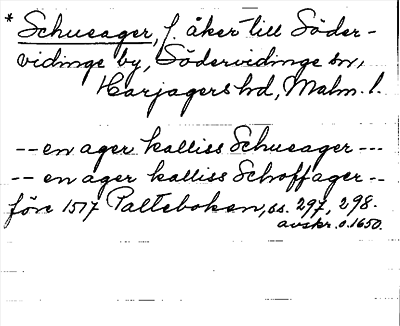 * Schueager, f. åker till Söder-
vidinge by, Södervidinge sn,
Harjagers hd, Malm. l.
--- en ager kalliss Schueager ---
-- en ager kalliss Schoffager --
före 1517 Palteboken, ss. 297, 298.
avskr. o. 1650.